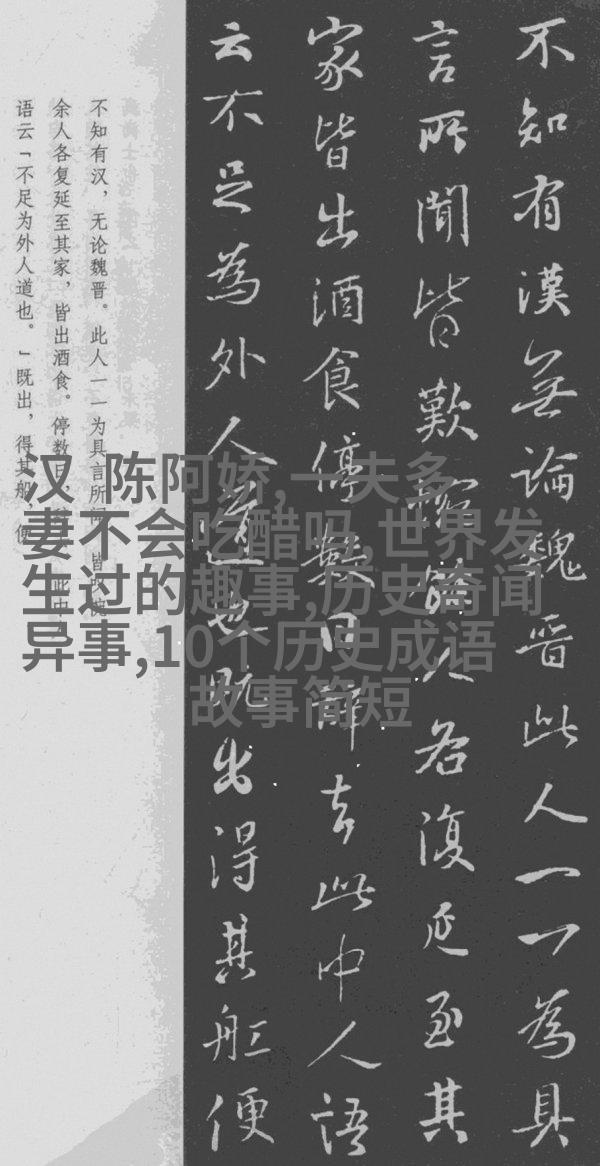 不知有漢無論魏晋此人一一為具
言所聞皆歎惋餘人各復延至其
家皆出酒食停數日辞去此中人語
云不足為外人道也既出得其船便
不知有汉，无论魏晋。此人一一为具言所闻，皆叹惋
余人各复延至其家，皆出酒食。停数日，辞去。此中人
语云「不足为外人道也。」既出，得其船，便
汉 陈阿娇,一夫多
妻不会吃醋吗,世界发
生过的趣事,历史奇闻
异事,10个历史成语
故事简短